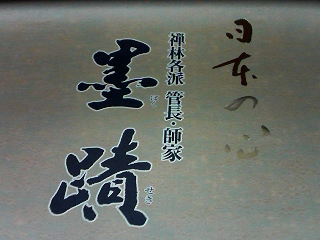 日本の心
禅林各派 管長・師家
墨蹟
ぼくせき